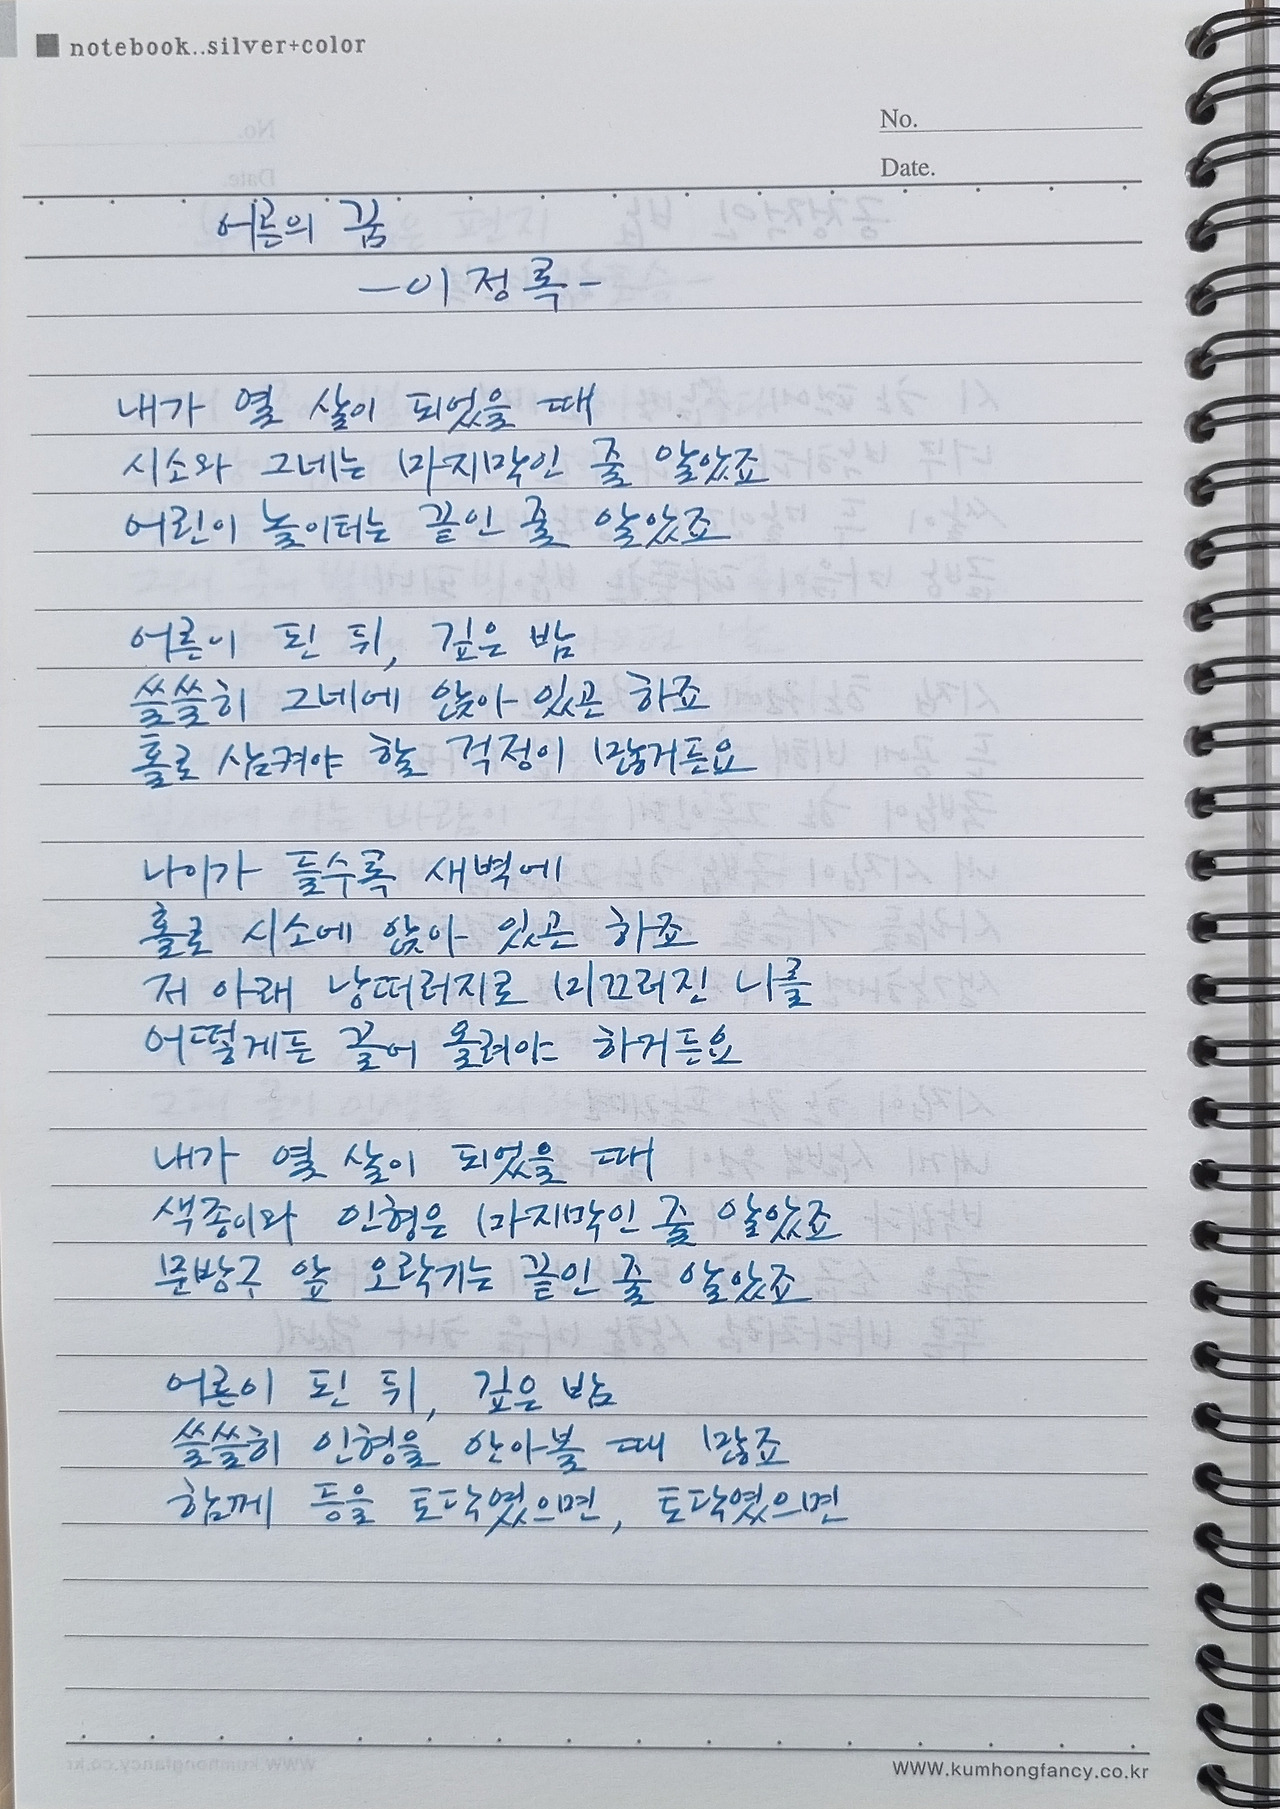 notebook..silver+color
No.
Date.
어른의 꿈
-이정록-
내가 열 살이 되었을 때
시소와 그네는 마지막인 줄 알았죠
어린이 놀이터는 끝인 줄 알았죠
어른이 된 뒤, 깊은 밤
쓸쓸히 그네에 앉아 있곤 하죠
홀로 삼켜야 할 걱정이 많거든요
나이가 들수록 새벽에
홀로 시소에 앉아 있곤 하죠
저 아래 낭떠러지로 미끄러진 나를
어떻게든 끌어 올려야 하거든요
내가 열 살이 되었을 때
색종이와 인형은 마지막인 줄 알았죠
문방구 앞 오락기는 끝인 줄 알았죠
어른이 된 뒤, 깊은 밤
쓸쓸히 인형을 안아볼 때 많죠
함께 등을 토닥였으면, 토닥였으면
www.kumhongfancy.co.kr